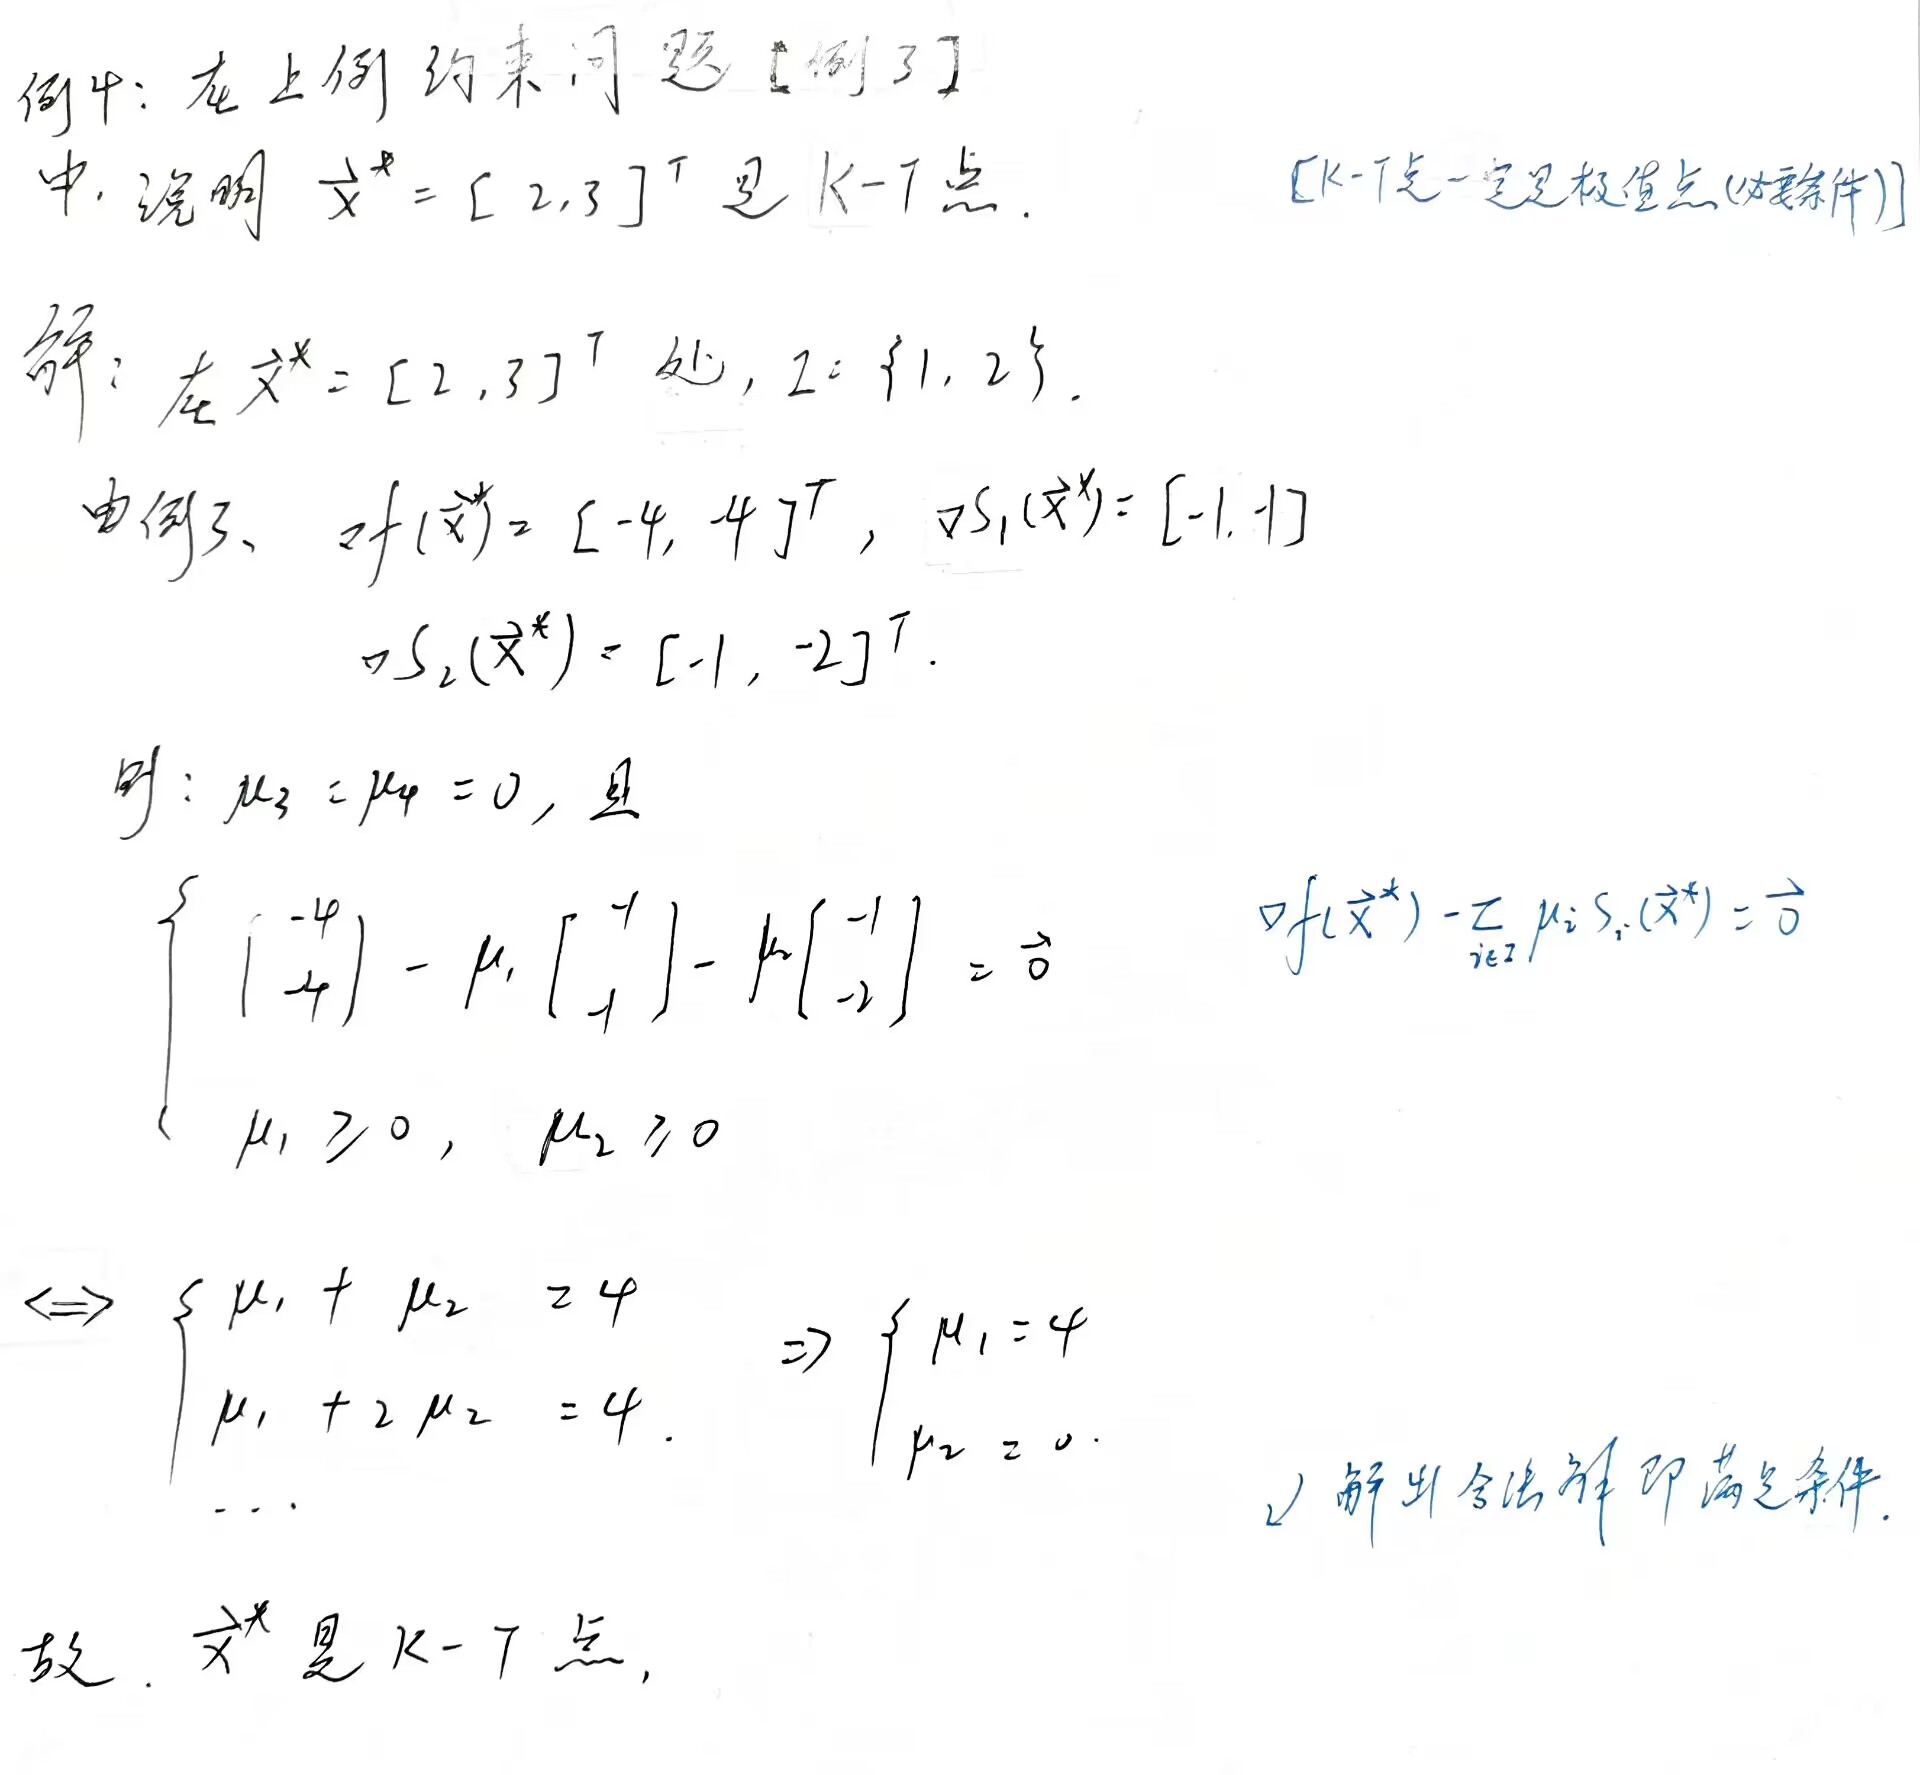 例4: 在上例约束问题[例3]
中, 说明 x⃗* = [2,3]ᵀ 是 K-T点.
[K-T点一定是极值点(必要条件)]
解: 在 x⃗* = [2,3]ᵀ 处, I = {1, 2}.
由例3、 ∇f(x⃗*) = [-4, -4]ᵀ, ∇S₁(x⃗*) = [-1, -1]
∇S₂(x⃗*) = [-1, -2]ᵀ.
则: μ₃ = μ₄ = 0, 且
{ [-4 -4] - μ₁ [-1 -1] - μ₂ [-1 -2] = 0⃗
∇f(x⃗*) - Σ_{i∈I} μᵢ Sᵢ(x⃗*) = 0⃗
μ₁ ≥ 0, μ₂ ≥ 0
<=> { μ₁ + μ₂ = 4
μ₁ + 2μ₂ = 4.
...
=> { μ₁ = 4
μ₂ = 0.
解出合法解即满足条件.
故. x⃗* 是 K-T 点,